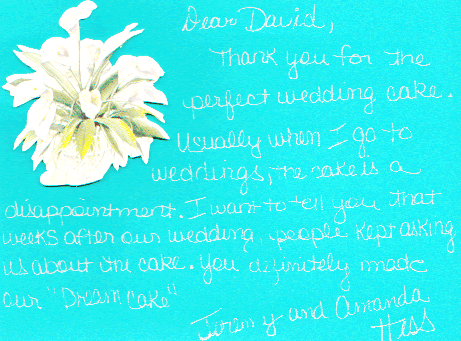 Dear David,
Thank you for the
perfect wedding cake.
Usually when I go to
weddings, the cake is a
disappointment. I want to tell you that
weeks after our wedding, people kept asking
us about the cake. You definitely made
our "Dream Cake"
Jeremy and Amanda
Hess